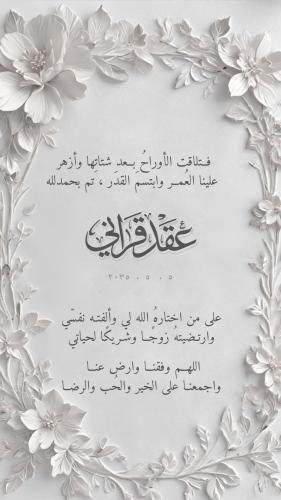 فـتلاقت الأوراحُ بـعـدِ شتاتِها وأزهر
علينا العُمـر وابتسمَ القدَر ، تم بحمدلله
عقد قراني
٢٠٣٥ . ٥ . ٥
على من اختارهُ الله لي وألِفتـه نفسّي
وارتـضيتهُ زوجًـا وشـريكًا لحياتي
اللهـم وفقنـا وارضِ عنـا
واجمعنـا على الخير والحُب والرضـا